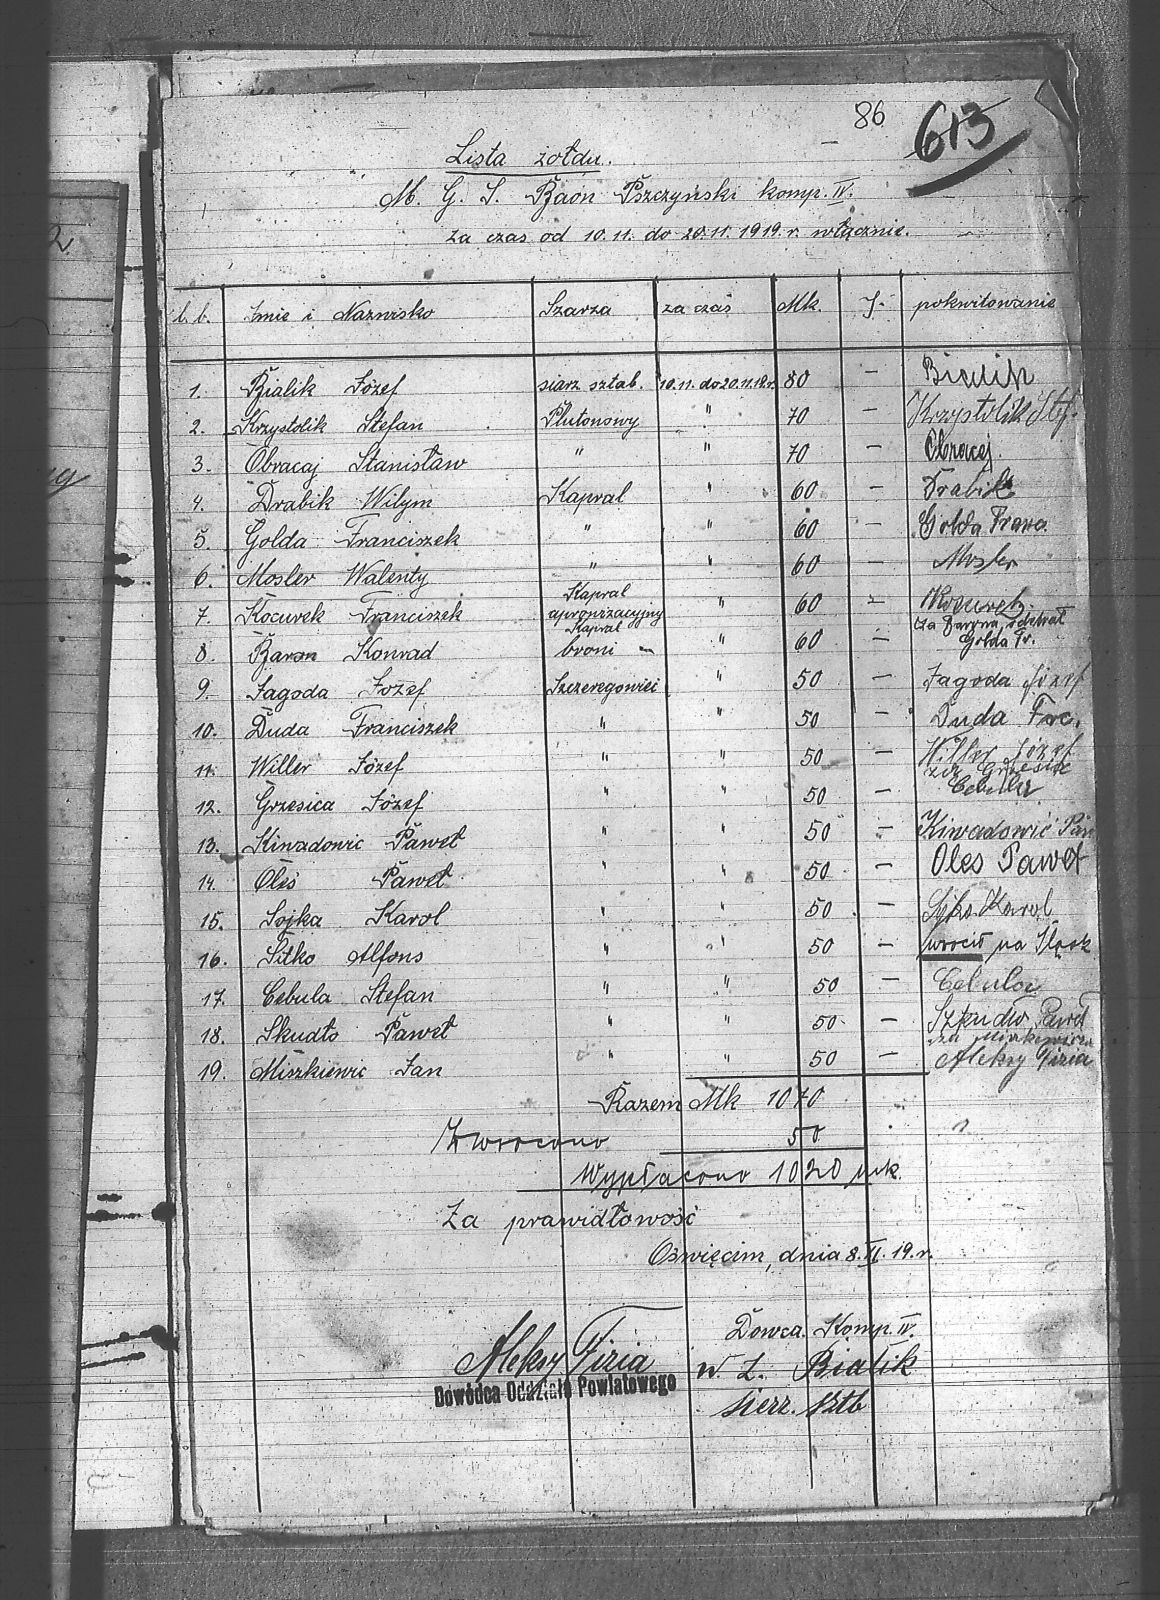 86 613
Lista żołdu.
M. G. S. Baon Pszczyński komp. IV.
za czas od 10.11. do 20.11. 1919. r. włącznie.
l. b. Imie i Nazwisko Szarza za czas Mk. f. pokwitowanie
1. Bialik Józef siarz. sztab. 10.11. do 20.11.19.r. 80 — Bialik
2. Krzystolik Stefan Plutonowy " 70 — Krzystolik Stef.
3. Obracaj Stanisław " " 70 — Obracaj.
4. Drabik Wilym Kapral " 60 — Drabik
5. Golda Franciszek " " 60 — Golda Franc.
6. Mosler Walenty " " 60 — Mosler
7. Kocurek Franciszek Kapral aprowizacyjny " 60 — Kocurek.
8. Baron Konrad Kapral broni " 60 — za Barona odebrał Golda Fr.
9. Jagoda Jozef Szczeregowiec " 50 — Jagoda Józef
10. Duda Franciszek " " 50 — Duda Frc.
11. Willer Józef " " 50 — Willer Józef
12. Grzesica Józef " " 50 — za Grzesica Cebula
13. Kiwadowic Paweł " " 50 — Kiwadowić Paw
14. Oleś Paweł " " 50 — Oles Paweł
15. Sojka Karol " " 50 — Karol
16. Sitko Alfons " " 50 — wrocił na Sląsk
17. Cebula Stefan " " 50 — Cebula
18. Skudło Paweł " " 50 — Szkudło Paweł
19. Miszkiewic Jan " " 50 — za Miszkewicza Aleksy Fizia
Razem Mk 1070
Zwrocono 50
Wypłacono 1020 mk.
Za prawidłowość
Oświęcim, dnia 8. XI. 19. r.
Dowca. Komp. IV.
Aleksy Fizia w. z. Bialik
Dowódca Oddziału Powiatowego
sierz. sztb